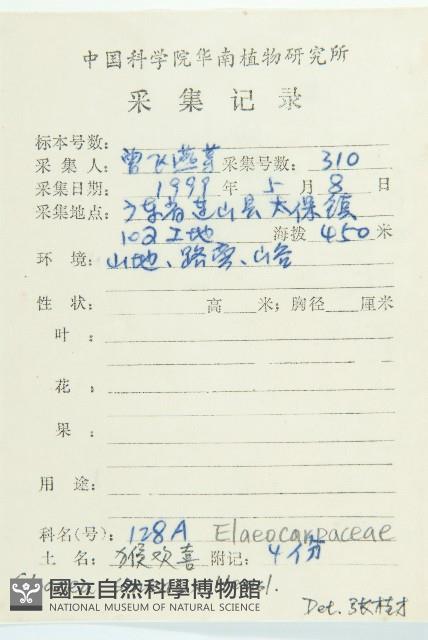 中国科学院华南植物研究所
采集记录
标本号数:
采集人: 曾飞燕等 采集号数: 310
采集日期: 1999 年 5 月 8 日
采集地点: 广东省连山县太保镇
102工地 海拨 450 米
环境: 山地、路旁、山谷
性状: 高 米; 胸径 厘米
叶:
花:
果:
用途:
科名(号): 128A Elaeocarpaceae
土名: 猴欢喜 附记: 4份
國立自然科學博物館
NATIONAL MUSEUM OF NATURAL SCIENCE
Det. 张桂才